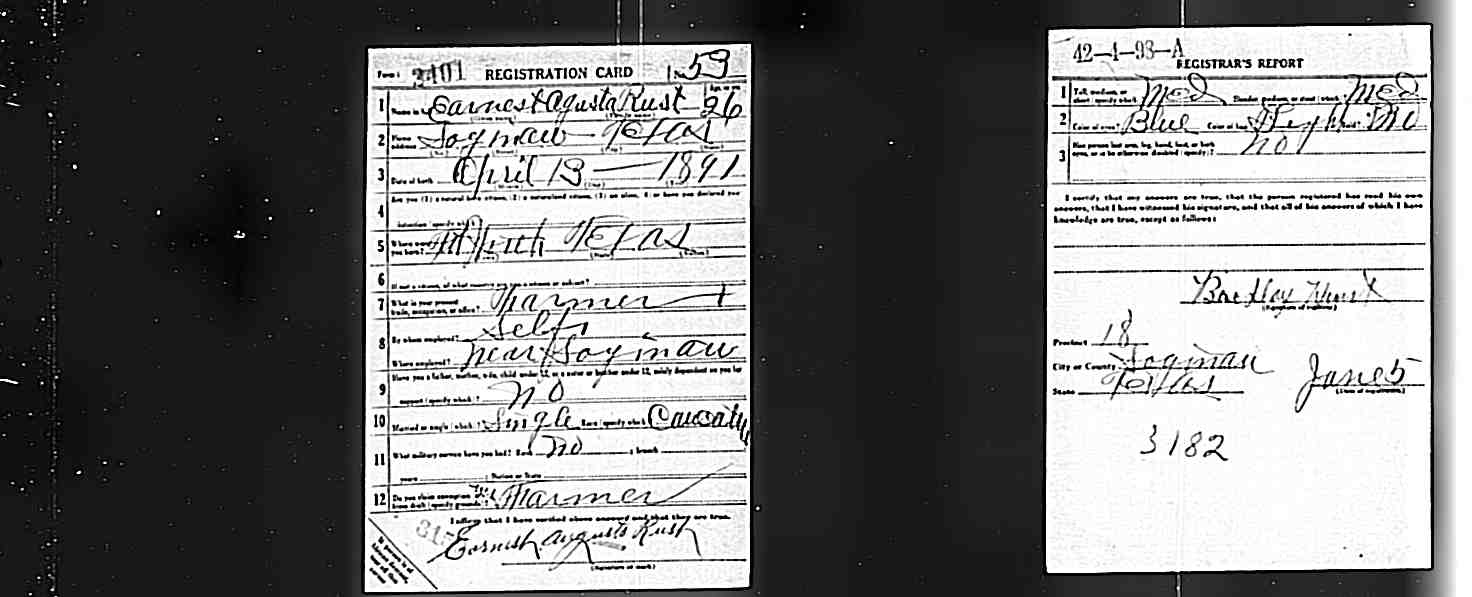 Form 1 2401 REGISTRATION CARD No. 53
1 Name in full Earnest Agusta Rust 26
(Given name) (Family name)
2 Home address Saginaw Texas
3 Date of birth April 13 1891
(Month) (Day)
4 Are you (1) a natural born citizen, (2) a naturalized citizen, (3) an alien, (4) or have you declared your
intention (specify which)?
5 Where were you born? Texas
6 If not a citizen, of what country are you a citizen or subject?
7 What is your present trade, occupation, or office? Farmer
8 By whom employed? Self
Where employed? near Saginaw
9 Have you a father, mother, wife, child under 12, or a sister or brother under 12, solely dependent on you for
support (specify which)? No
10 Married or single (which)? Single Race (specify which)?
11 What military service have you had? Rank No ; branch
years ; Nation or State
12 Do you claim exemption from draft (specify grounds)? Farmer
I affirm that I have verified above answers and that they are true.
Earnest Augusta Rust
(Signature or mark)
42-4-93-A
REGISTRAR'S REPORT
1 Tall, medium, or short (specify which)? Med Slender, medium, or stout (which)? Med
2 Color of eyes? Blue Color of hair? Bald? No
3 Has person lost arm, leg, hand, foot, or both
eyes, or is he otherwise disabled (specify)? No
I certify that my answers are true, that the person registered has read his own
answers, that I have witnessed his signature, and that all of his answers of which I have
knowledge are true, except as follows:
(Signature of registrar)
Precinct 18
City or County Saginaw
State Texas June 5
(Date of registration)
3182